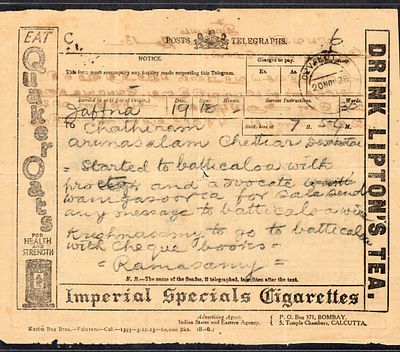 EAT
Quaker Oats
FOR
HEALTH
AND
STRENGTH
DRINK LIPTON'S TEA.
C
POSTS TELEGRAPHS.
6
NOTICE.
This form must accompany any inquiry made respecting this Telegram.
Charges to pay.
Rs. As.
20 NOV 26
Handed in at (Office of Origin).
Date
Hour
Minute
Service Instructions.
Words.
Jaffna
19
18
TO
Recd. here at
H.
M.
Chathiram
Arunasalam Chettiar
= Started to batticaloa with
proctor and advocate
wanigasooria for sale send
any message to batticaloa
Krishnasamy to go to batticaloa
with cheque books =
= Ramasamy =
N. B.—The name of the Sender, if telegraphed, is written after the text.
Imperial Specials Cigarettes
Advertising Agents
Indian States and Eastern Agency.
P. O. Box 371, BOMBAY.
5, Temple Chambers, CALCUTTA.
Karim Bux Bros.—Printers—Cal.